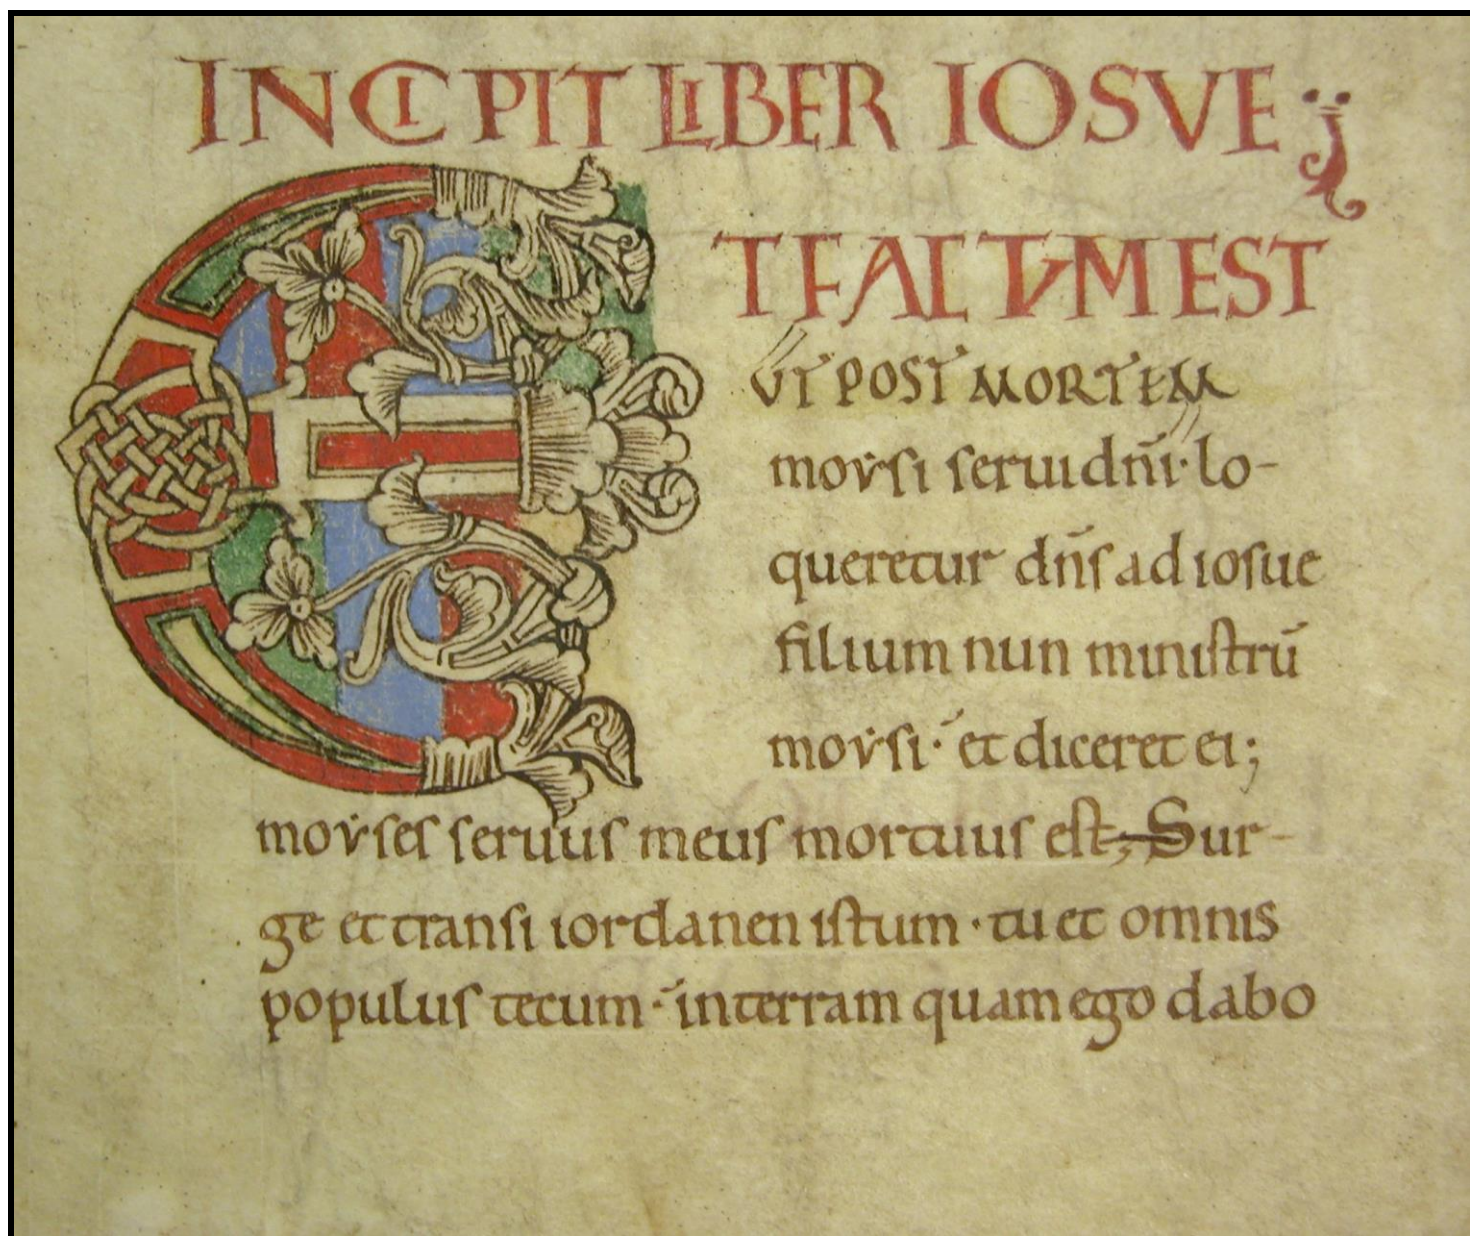 INCIPIT LIBER IOSVE
ET FACTVM EST
VT POST MORTEM
moẏsi serui dn̄i· lo-
queretur dn̄s ad iosue
filium nun ministrū
moẏsi· et diceret ei;
moẏses seruus meus mortuus est; Sur-
ge et transi iordanen istum · tu et omnis
populus tecum · in terram quam ego dabo